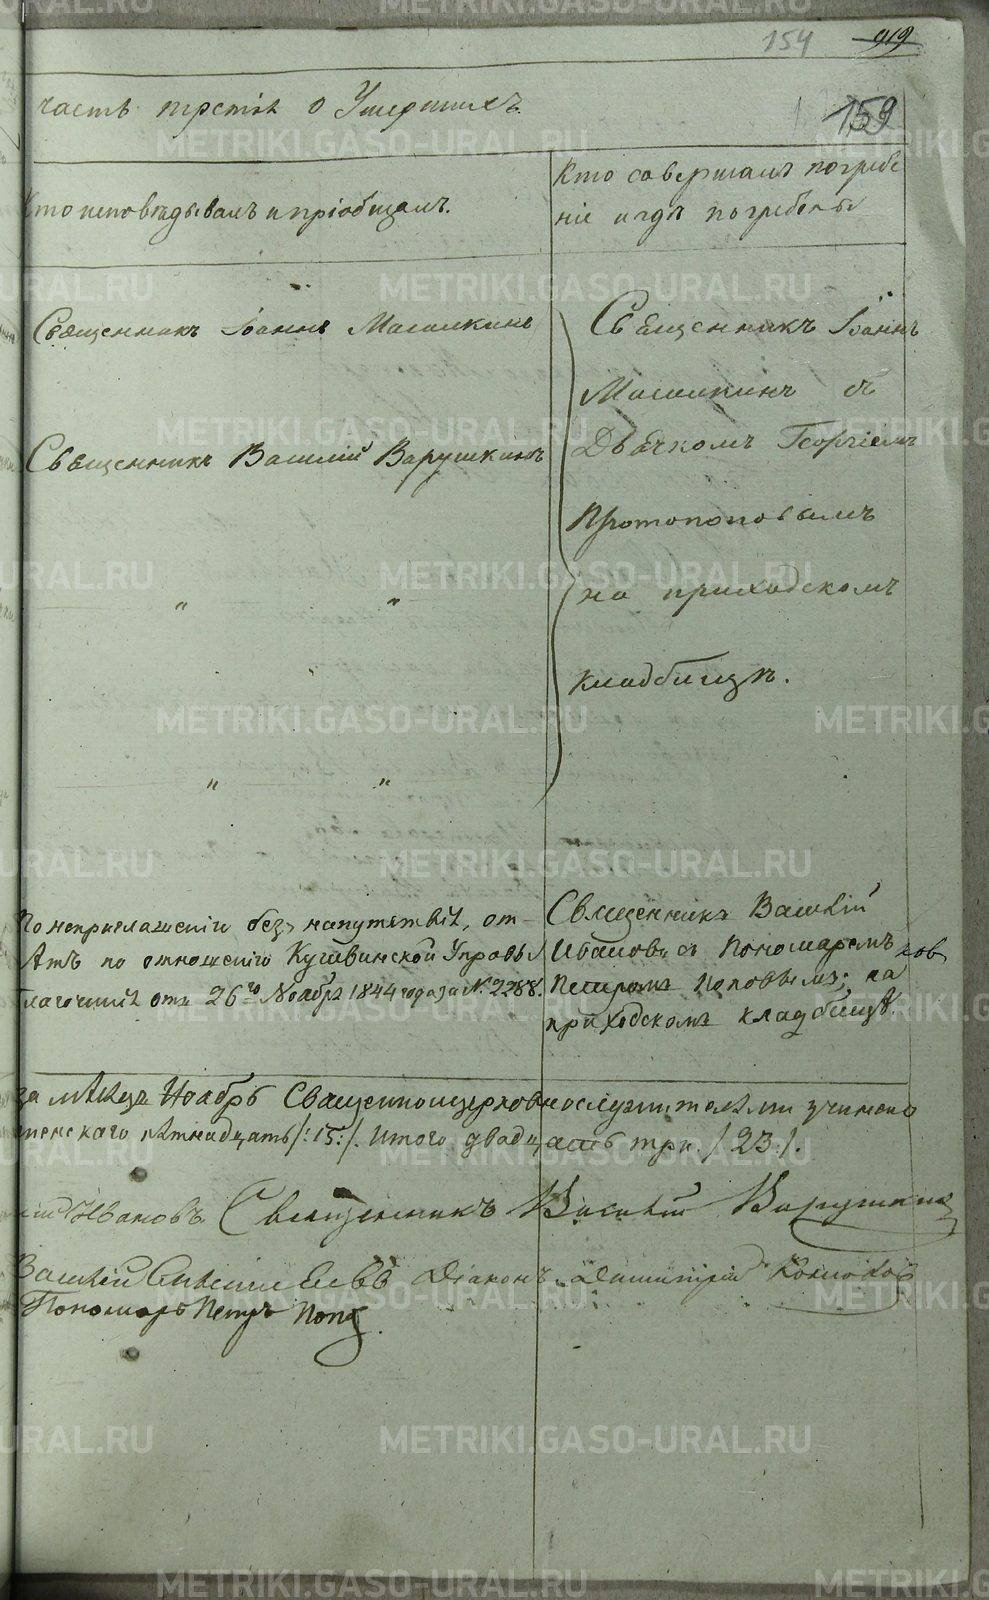 154 919
159
часть третія о Умершихъ
Кто исповѣдывалъ и пріобщалъ.
Кто совершалъ погребе
ніе и гдѣ погребены
Священникъ Іоаннъ Машикинъ
Священникъ Василій Варушкинъ
" "
" "
Священникъ Іоаннъ
Машикинъ съ
Дьячкомъ Георгіемъ
Протопоповымъ
на приходскомъ
кладбищѣ.
По неприглашенію безъ напутствія, от-
ѣтъ по отношенію Кушвинской Управы
лагочинія отъ 26го Ноября 1844 года за №. 2288.
Священникъ Василій
Ивановъ съ Пономаремъ
Петромъ Поповымъ; на
приходскомъ кладбищѣ.
за мѣсяцъ Ноябрь Священноцерковнослужителями учинено
женскаго пятнадцать /:15:/. Итого двадцать три /23/.
Ивановъ Священникъ Василій Варушкинъ
Василій Діаконъ Димитрій
Пономарь Петръ Попо
METRIKI.GASO-URAL.RU